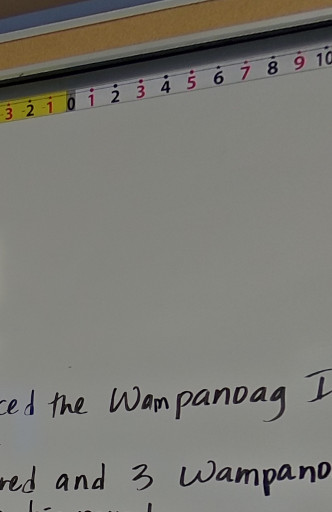 -3 -2 -1 0 1 2 3 4 5 6 7 8 9 10
ced the Wampanoag
red and 3 Wampano